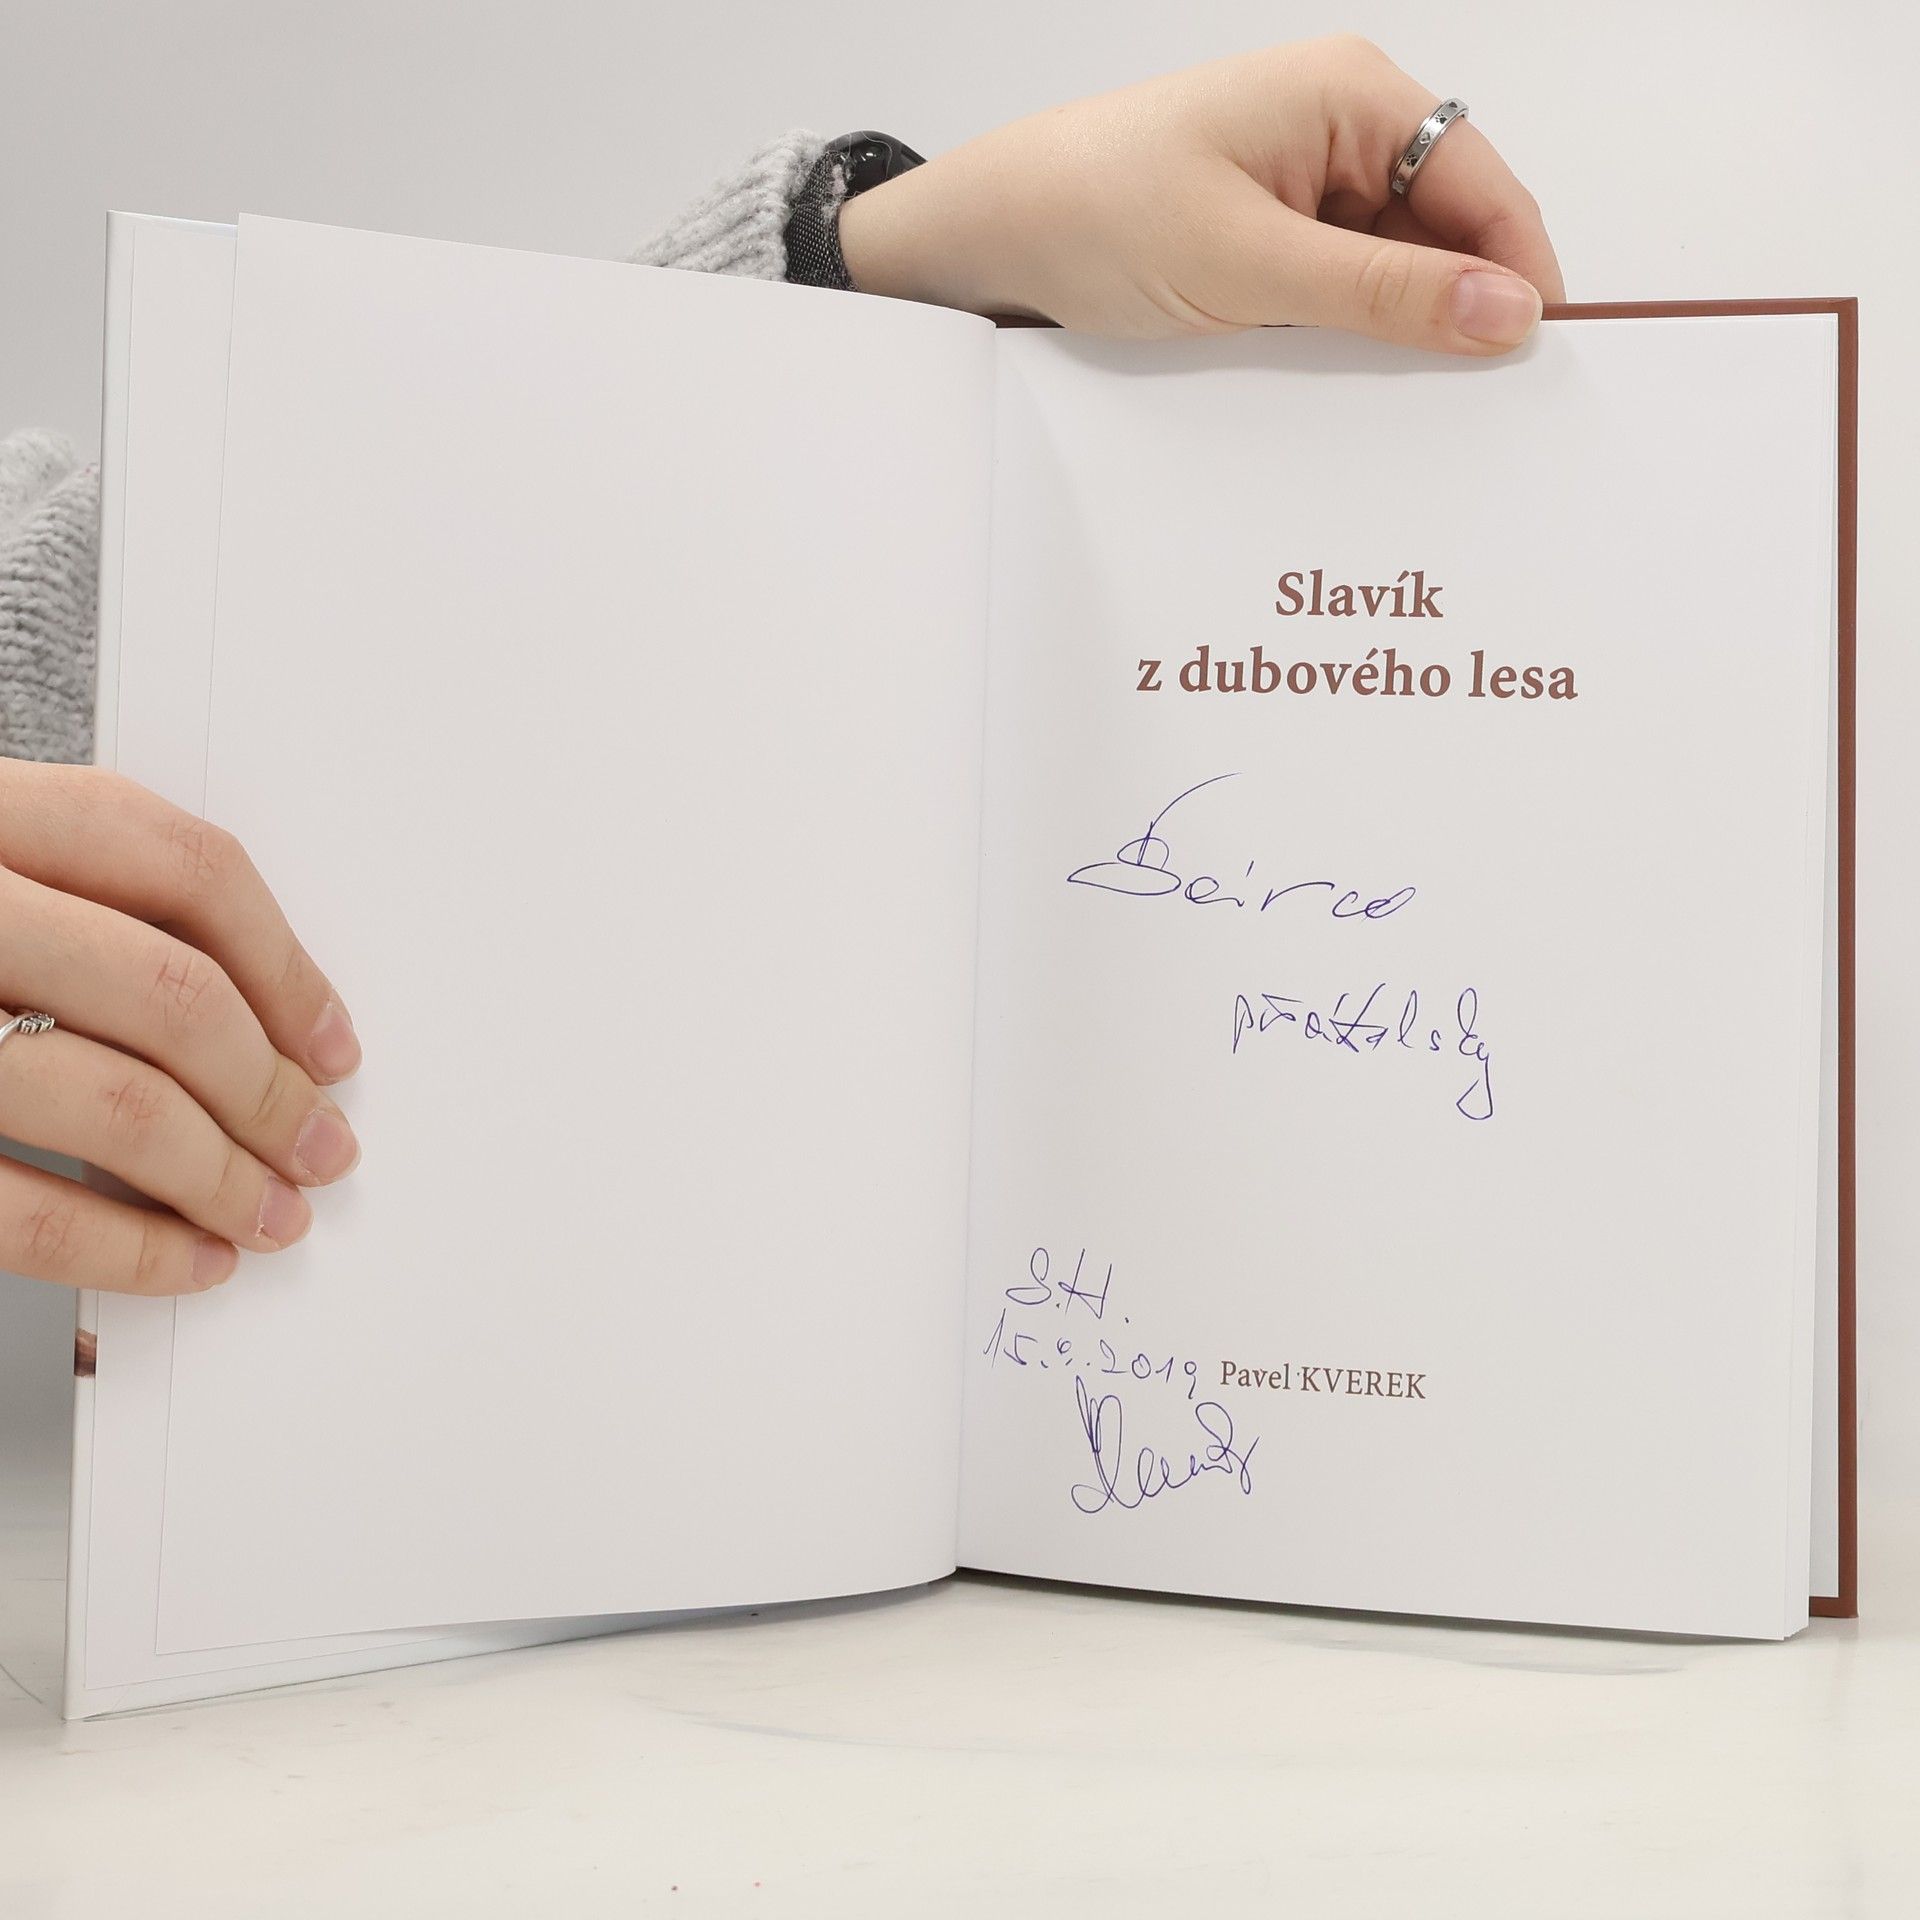 Slavík
z dubového lesa
přátelsky
S.H.
15.9.2019 Pavel KVEREK